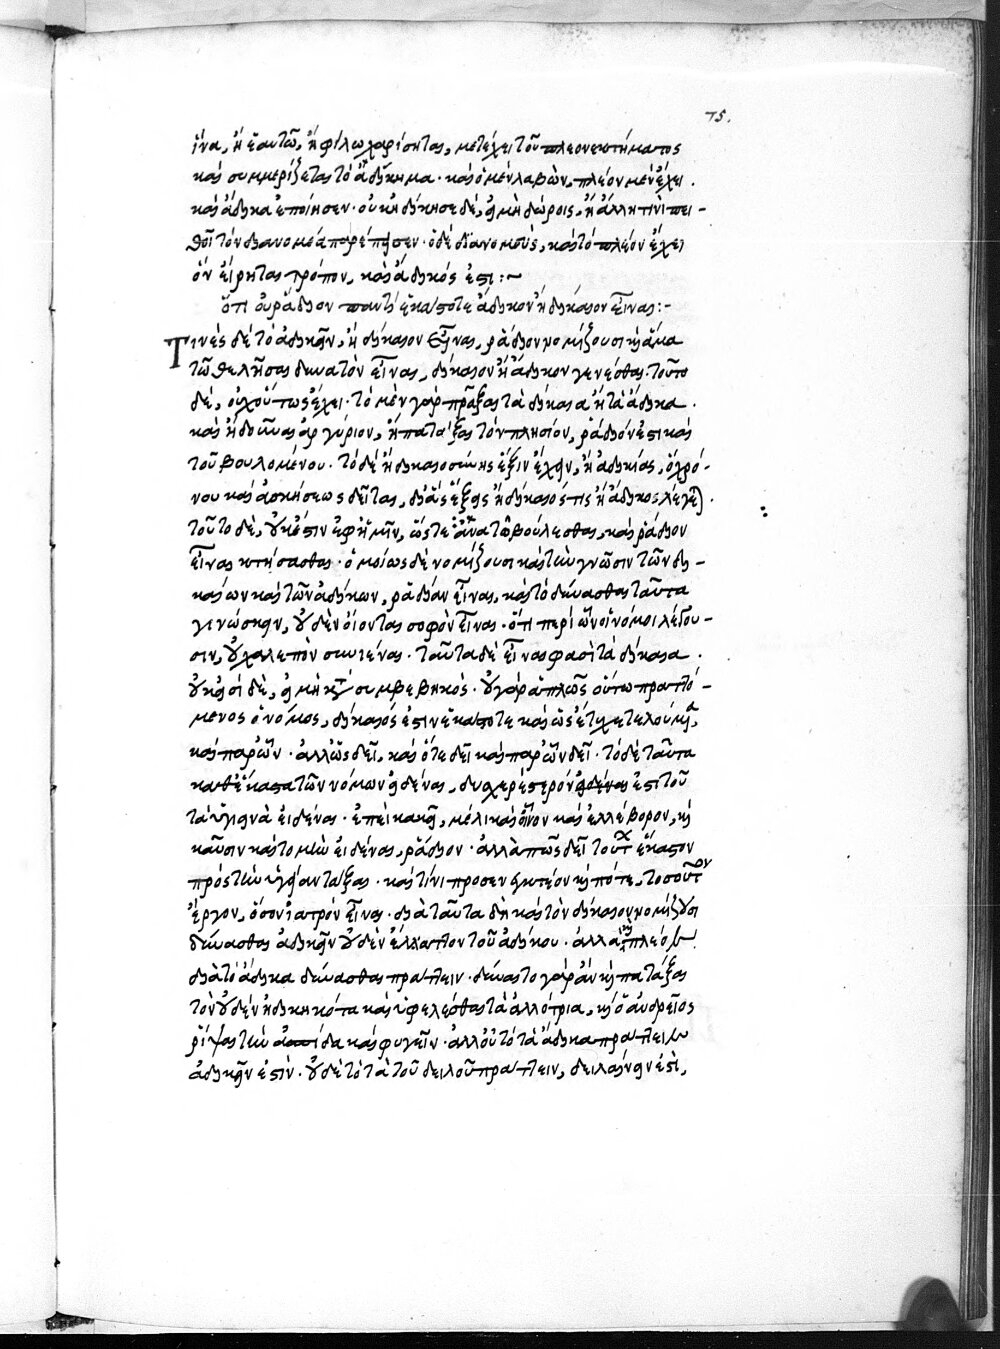 75.
ἵνα, ἢ ἑαυτῷ, ἢ φίλῳ χαρίσηται, μετέχει τοῦ πλεονεκτήματος
καὶ συμμερίζεται τὸ ἀδίκημα· καὶ ὁ μὲν λαβὼν, πλέον μὲν ἔχει.
καὶ ἄδικα ἐποίησεν· οὐκ ἠδίκησε δὲ, εἰ μὴ δώροις, ἢ ἄλλῃ τινὶ πει-
θοῖ τὸν διανομέα παρέπεισεν· ὁ δὲ διανομεὺς, καὶ τὸ πλέον ἔχει
ὃν εἴρηται τρόπον, καὶ ἄδικός ἐστι:~
ὅτι οὐ ῥάδιον παντὶ ἑκάστοτε ἄδικον ἢ δίκαιον εἶναι:-
Τινὲς δὲ τὸ ἀδικεῖν, ἢ δίκαιον εἶναι, ῥάδιον νομίζουσι καὶ ἅμα
τῷ θελῆσαι δυνατὸν εἶναι, δίκαιον ἢ ἄδικον γενέσθαι. τοῦτο
δὲ, οὐχ οὕτως ἔχει· τὸ μὲν γὰρ πρᾶξαι τὰ δίκαια ἢ τὰ ἄδικα.
καὶ ἢ δοῦναι ἀργύριον, ἢ πατάξαι τὸν πλησίον, ῥάδιόν ἐστι καὶ
τοῦ βουλομένου· τὸ δὲ ἢ δικαιοσύνης ἕξιν ἔχειν, ἢ ἀδικίας, ὃ χρό-
νου καὶ ἀσκήσεως δεῖται, δι' ἃς ἕξεις ἢ δίκαιός τις ἢ ἄδικος λέγεται.
τοῦτο δὲ, οὐκ ἔστιν ἐφ' ἡμῖν, ὥστε ἅμα τῷ βούλεσθαι, καὶ ῥάδιον
εἶναι κτήσασθαι· ὁμοίως δὲ νομίζουσι καὶ τὴν γνῶσιν τῶν δι-
καίων καὶ τῶν ἀδίκων, ῥαδίαν εἶναι, καὶ τὸ δύνασθαι ταῦτα
γινώσκειν, οὐδὲν οἴονται σοφὸν εἶναι· ὅτι περὶ ὧν οἱ νόμοι λέγου-
σιν, οὐ χαλεπὸν συνιέναι. ταῦτα δὲ εἶναι φασὶ τὰ δίκαια.
οὐκ ἔστι δὲ, εἰ μὴ κατὰ συμβεβηκός. οὐ γὰρ ἁπλῶς οὕτω πραττό-
μενος ὁ νόμος, δίκαιός ἐστιν ἑκάστοτε καὶ ὡς ἔτυχε τελούμενος,
καὶ παρ' ὧν. ἀλλ' ὡς δεῖ, καὶ ὅτε δεῖ καὶ παρ' ὧν δεῖ. τὸ δὲ ταῦτα
καθ' ἕκαστα τῶν νόμων εἰδέναι, δυσχερέστερόν ἐστι τοῦ
τὰ ὑγιεινὰ εἰδέναι. ἐπεὶ κἀκεῖ, μέλι καὶ οἶνον καὶ ἐλλέβορον, καὶ
καῦσιν καὶ τομὴν εἰδέναι, ῥάδιον· ἀλλὰ πῶς δεῖ τούτων ἕκαστον
πρὸς τὴν ὑγείαν τάξαι. καὶ τίνι προσενεκτέον καὶ πότε, τοσοῦτον
ἔργον, ὅσον ἰατρὸν εἶναι. διὰ ταῦτα δὴ καὶ τὸν δίκαιον νομίζουσι
δύνασθαι ἀδικεῖν οὐδὲν ἔλαττον τοῦ ἀδίκου. ἀλλὰ καὶ πλέον
διὰ τὸ ἄδικα δύνασθαι πράττειν. δύναιτο γὰρ ἂν καὶ πατάξαι
τὸν οὐδὲν ἠδικηκότα καὶ ὑφελέσθαι τὰ ἀλλότρια, καὶ ὁ ἀνδρεῖος
ῥίψαι τὴν ἀσπίδα καὶ φυγεῖν. ἀλλ' οὐ τὸ τὰ ἄδικα πράττειν
ἀδικεῖν ἐστίν. οὐδὲ τὸ τὰ τοῦ δειλοῦ πράττειν, δειλαίνειν ἐστὶ,